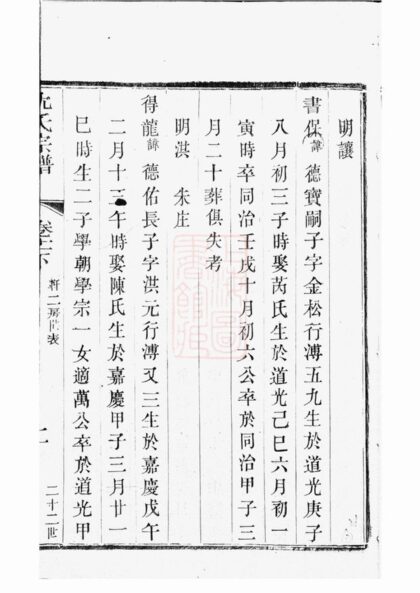 明讓
書保諱德寶嗣子字金松行溥五九生於道光庚子
八月初三子時娶芮氏生於道光己巳六月初一
寅時卒同治壬戌十月初六公卒於同治甲子三
月二十葬俱失考
明淇 朱庄
得龍諱德佑長子字淇元行溥又三生於嘉慶戊午
二月十三午時娶陳氏生於嘉慶甲子三月廿一
巳時生二子學朝學宗一女適萬公卒於道光甲
沈氏宗譜 卷二下 軒二房世表 二十二世